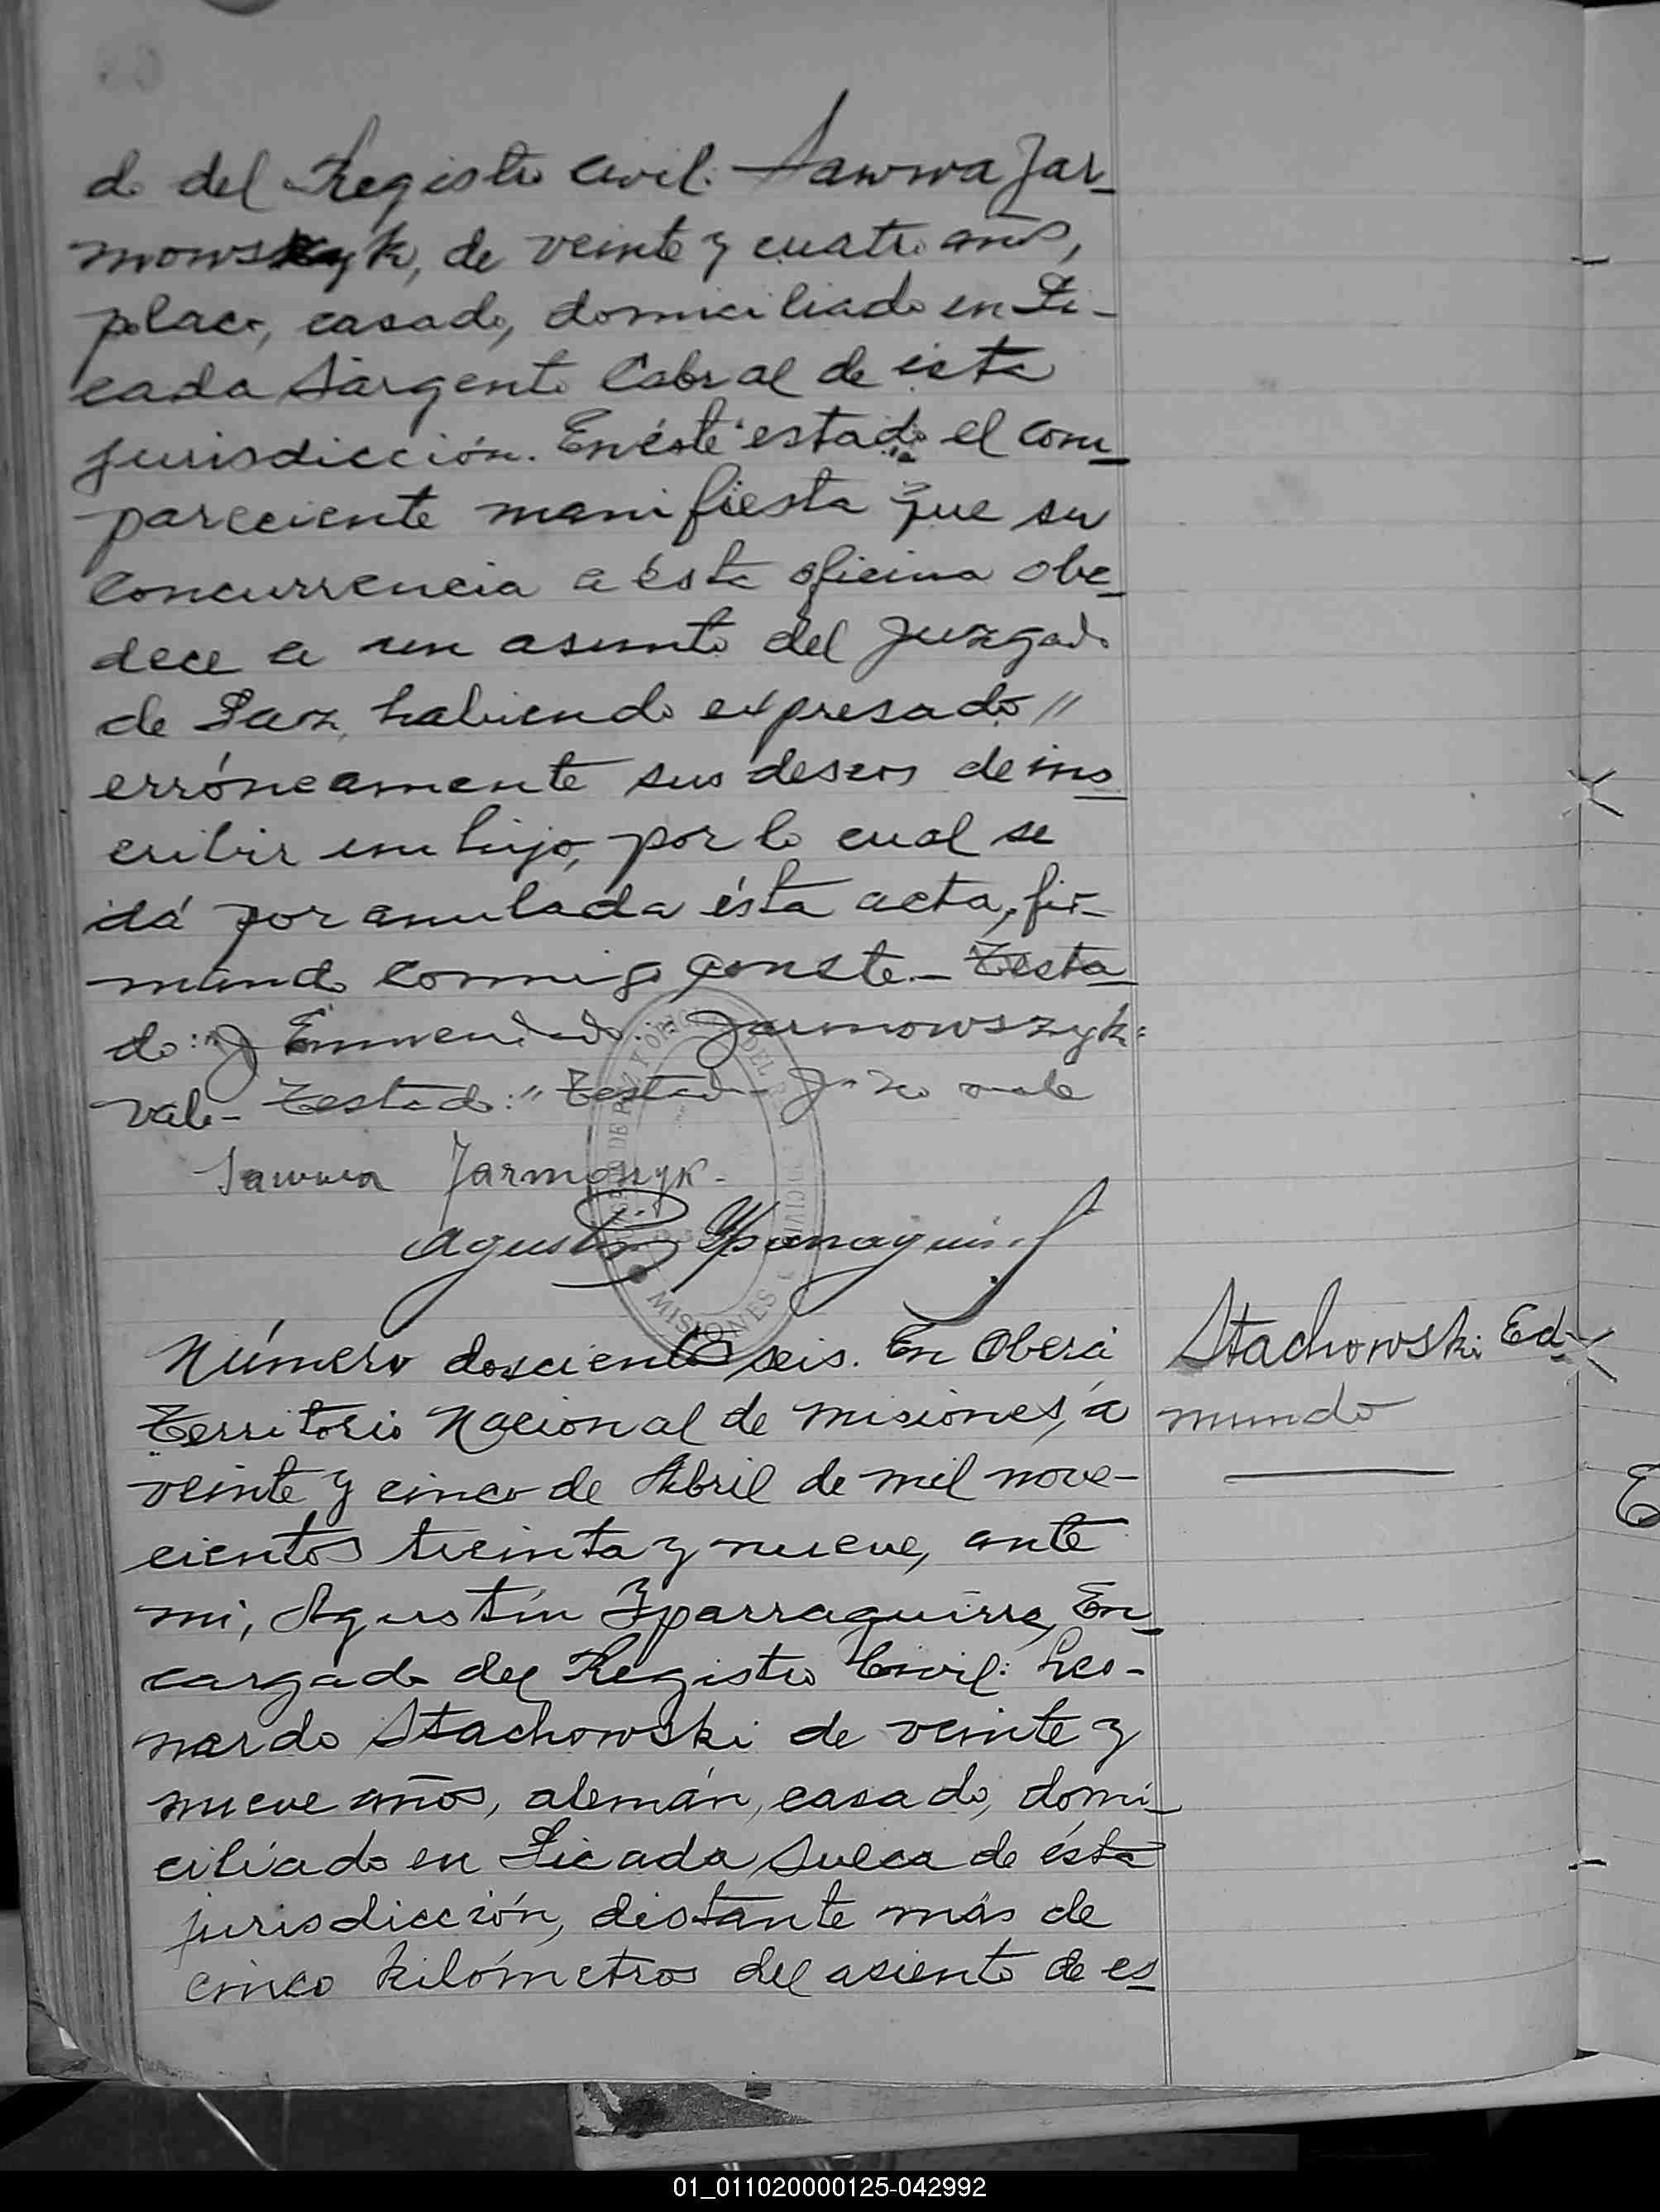 do del Registro Civil: Sawwa Jar-
mowszyk, de veinte y cuatro años,
polaco, casado, domiciliado en Pi-
cada Sargento Cabral de ésta
jurisdicción. En éste estado el com-
pareciente manifiesta que su
concurrencia a ésta oficina obe-
dece a un asunto del Juzgado
de Paz, habiendo expresado //
erróneamente sus deseos de ins-
cribir un hijo, por lo cual se
dá por anulada ésta acta, fir-
mando conmigo conste.- Testa-
do: "J Enmendado: Jarmowszyk:
Vale- Testado: " Testado J" no vale
Sawwa Jarmoszyk.
Agustín Yparraguirre
MISIONES
Número doscientos seis. En Oberá
Territorio Nacional de Misiones, á
veinte y cinco de Abril de mil nove-
cientos treinta y nueve, ante
mi, Agustín Yparraguirre, En-
cargado del Registro Civil: Leo-
nardo Stachowski de veinte y
nueve años, alemán, casado, domi-
ciliado en Picada Sueca de ésta
jurisdicción, distante más de
cinco kilómetros del asiento de es-
Stachowski Ed-
mundo
01_011020000125-042992